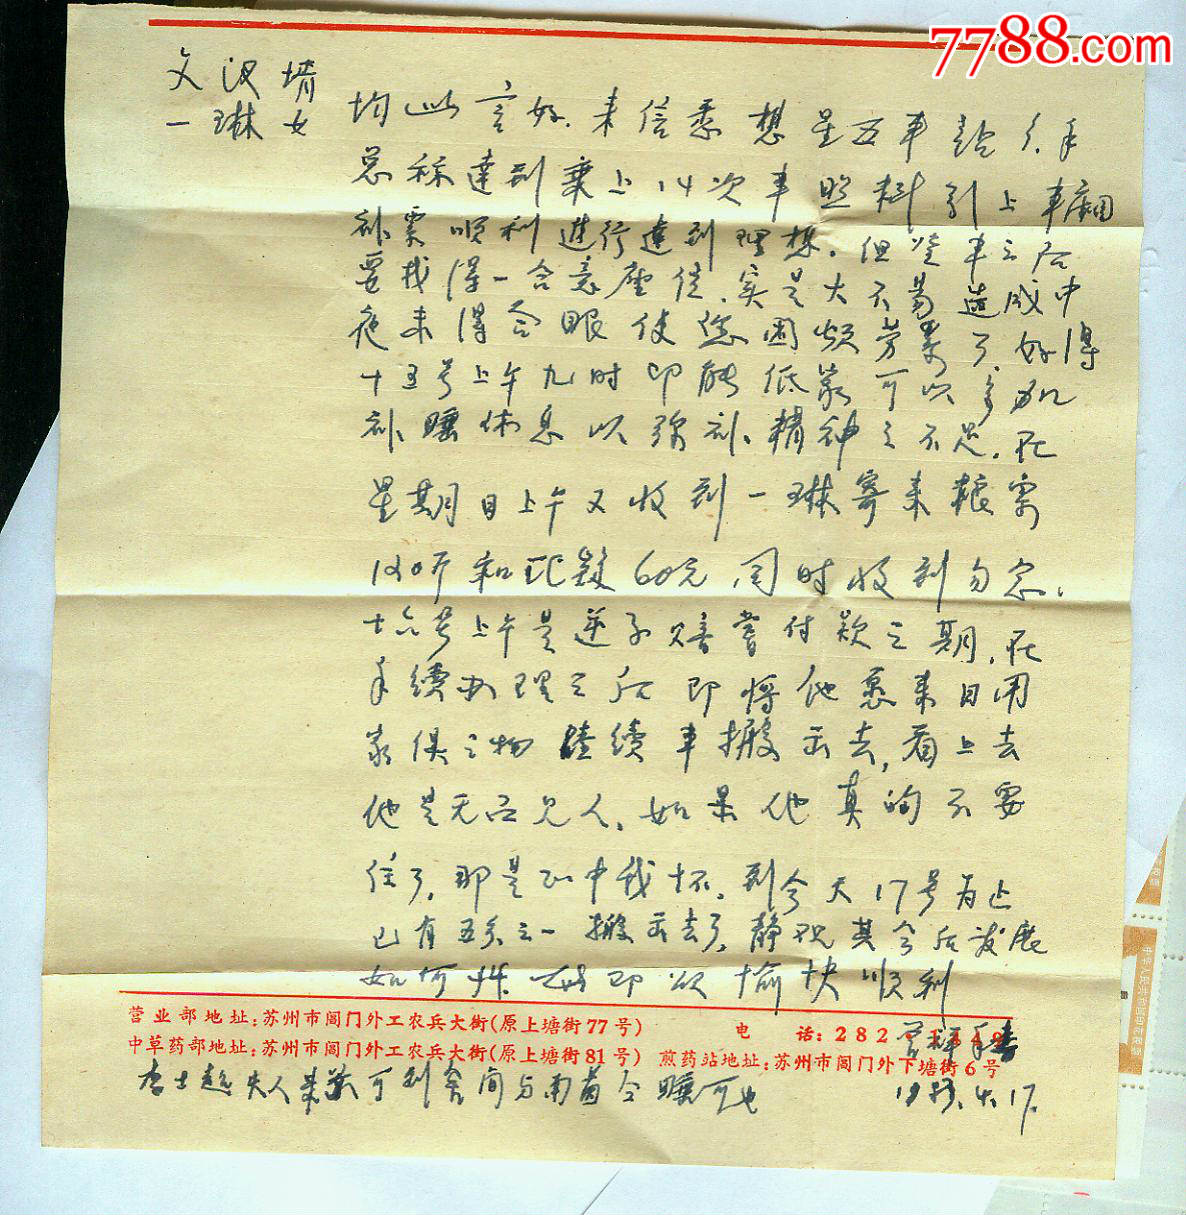 7788.com
文汉婿
一琳女
均此言好.来信悉想星五车
总称达到乘上14次车照料引上车厢
补票顺利进行达到理想.但 车之后
要找得一合意座位.实是大不易造成中
夜未得合眼使您困烦劳累了.好得
十五号上午九时即能低家可以多加
补睡休息以弥补精神之不足.在
星期日上午又收到一琳寄来粮票
120斤和汇款60元同时收到勿念.
十六号上午是逆子赔偿付款之期.在
手续办理之后即将他 来日用
家俱之物陆续车搬出去,看上去
他是无 人.如果他真的不要
住了,那是正中我怀.到今天17号为止
已有五分之一搬出去了,静观其今后发展
如何 .即颂愉快顺利
营业部地址:苏州市阊门外工农兵大街(原上塘街77号) 电 话:282
中草药部地址:苏州市阊门外工农兵大街(原上塘街81号) 煎药站地址:苏州市阊门外下塘街6号
李士 夫人来 可到舍间与南 合睡可也
1983.4.17.
中华人民共和国印花税票